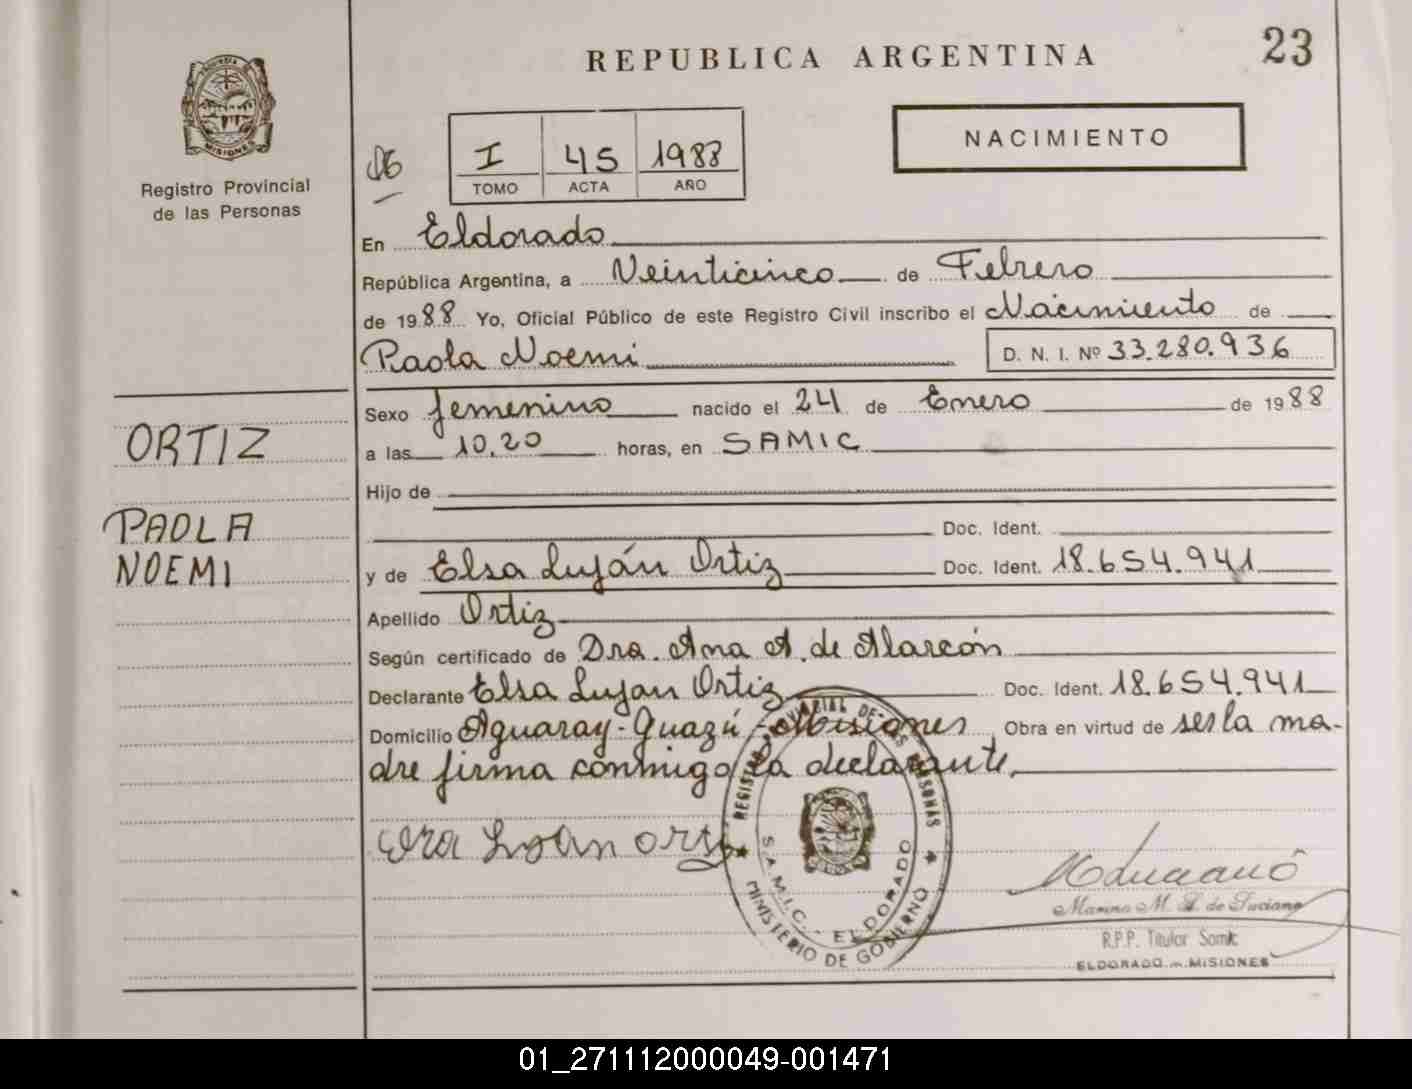 REPUBLICA ARGENTINA
23
PROVINCIA DE MISIONES
Registro Provincial
de las Personas
NACIMIENTO
I 45 1988
TOMO ACTA AÑO
En Eldorado
República Argentina, a Veinticinco de Febrero
de 1988 Yo, Oficial Público de este Registro Civil inscribo el Nacimiento de
Paola Noemi D. N. I. Nº 33.280.936
Sexo femenino nacido el 24 de Enero de 1988
a las 10,20 horas, en SAMIC
Hijo de
Doc. Ident.
y de Elsa Luján Ortiz Doc. Ident. 18.654.941
Apellido Ortiz
Según certificado de Dra. Ana A. de Alarcón
Declarante Elsa Lujan Ortiz Doc. Ident. 18.654.941
Domicilio Aguaray-Guazú-Misiones Obra en virtud de ser la ma-
dre firma conmigo la declarante.
ORTIZ
PAOLA
NOEMI
REGISTRO PROVINCIAL DE LAS PERSONAS
S.A.M.I.C. - ELDORADO
MINISTERIO DE GOBIERNO
Marina M. A. de Luciano
R.P.P. Titular Samic
ELDORADO - MISIONES
01_271112000049-001471